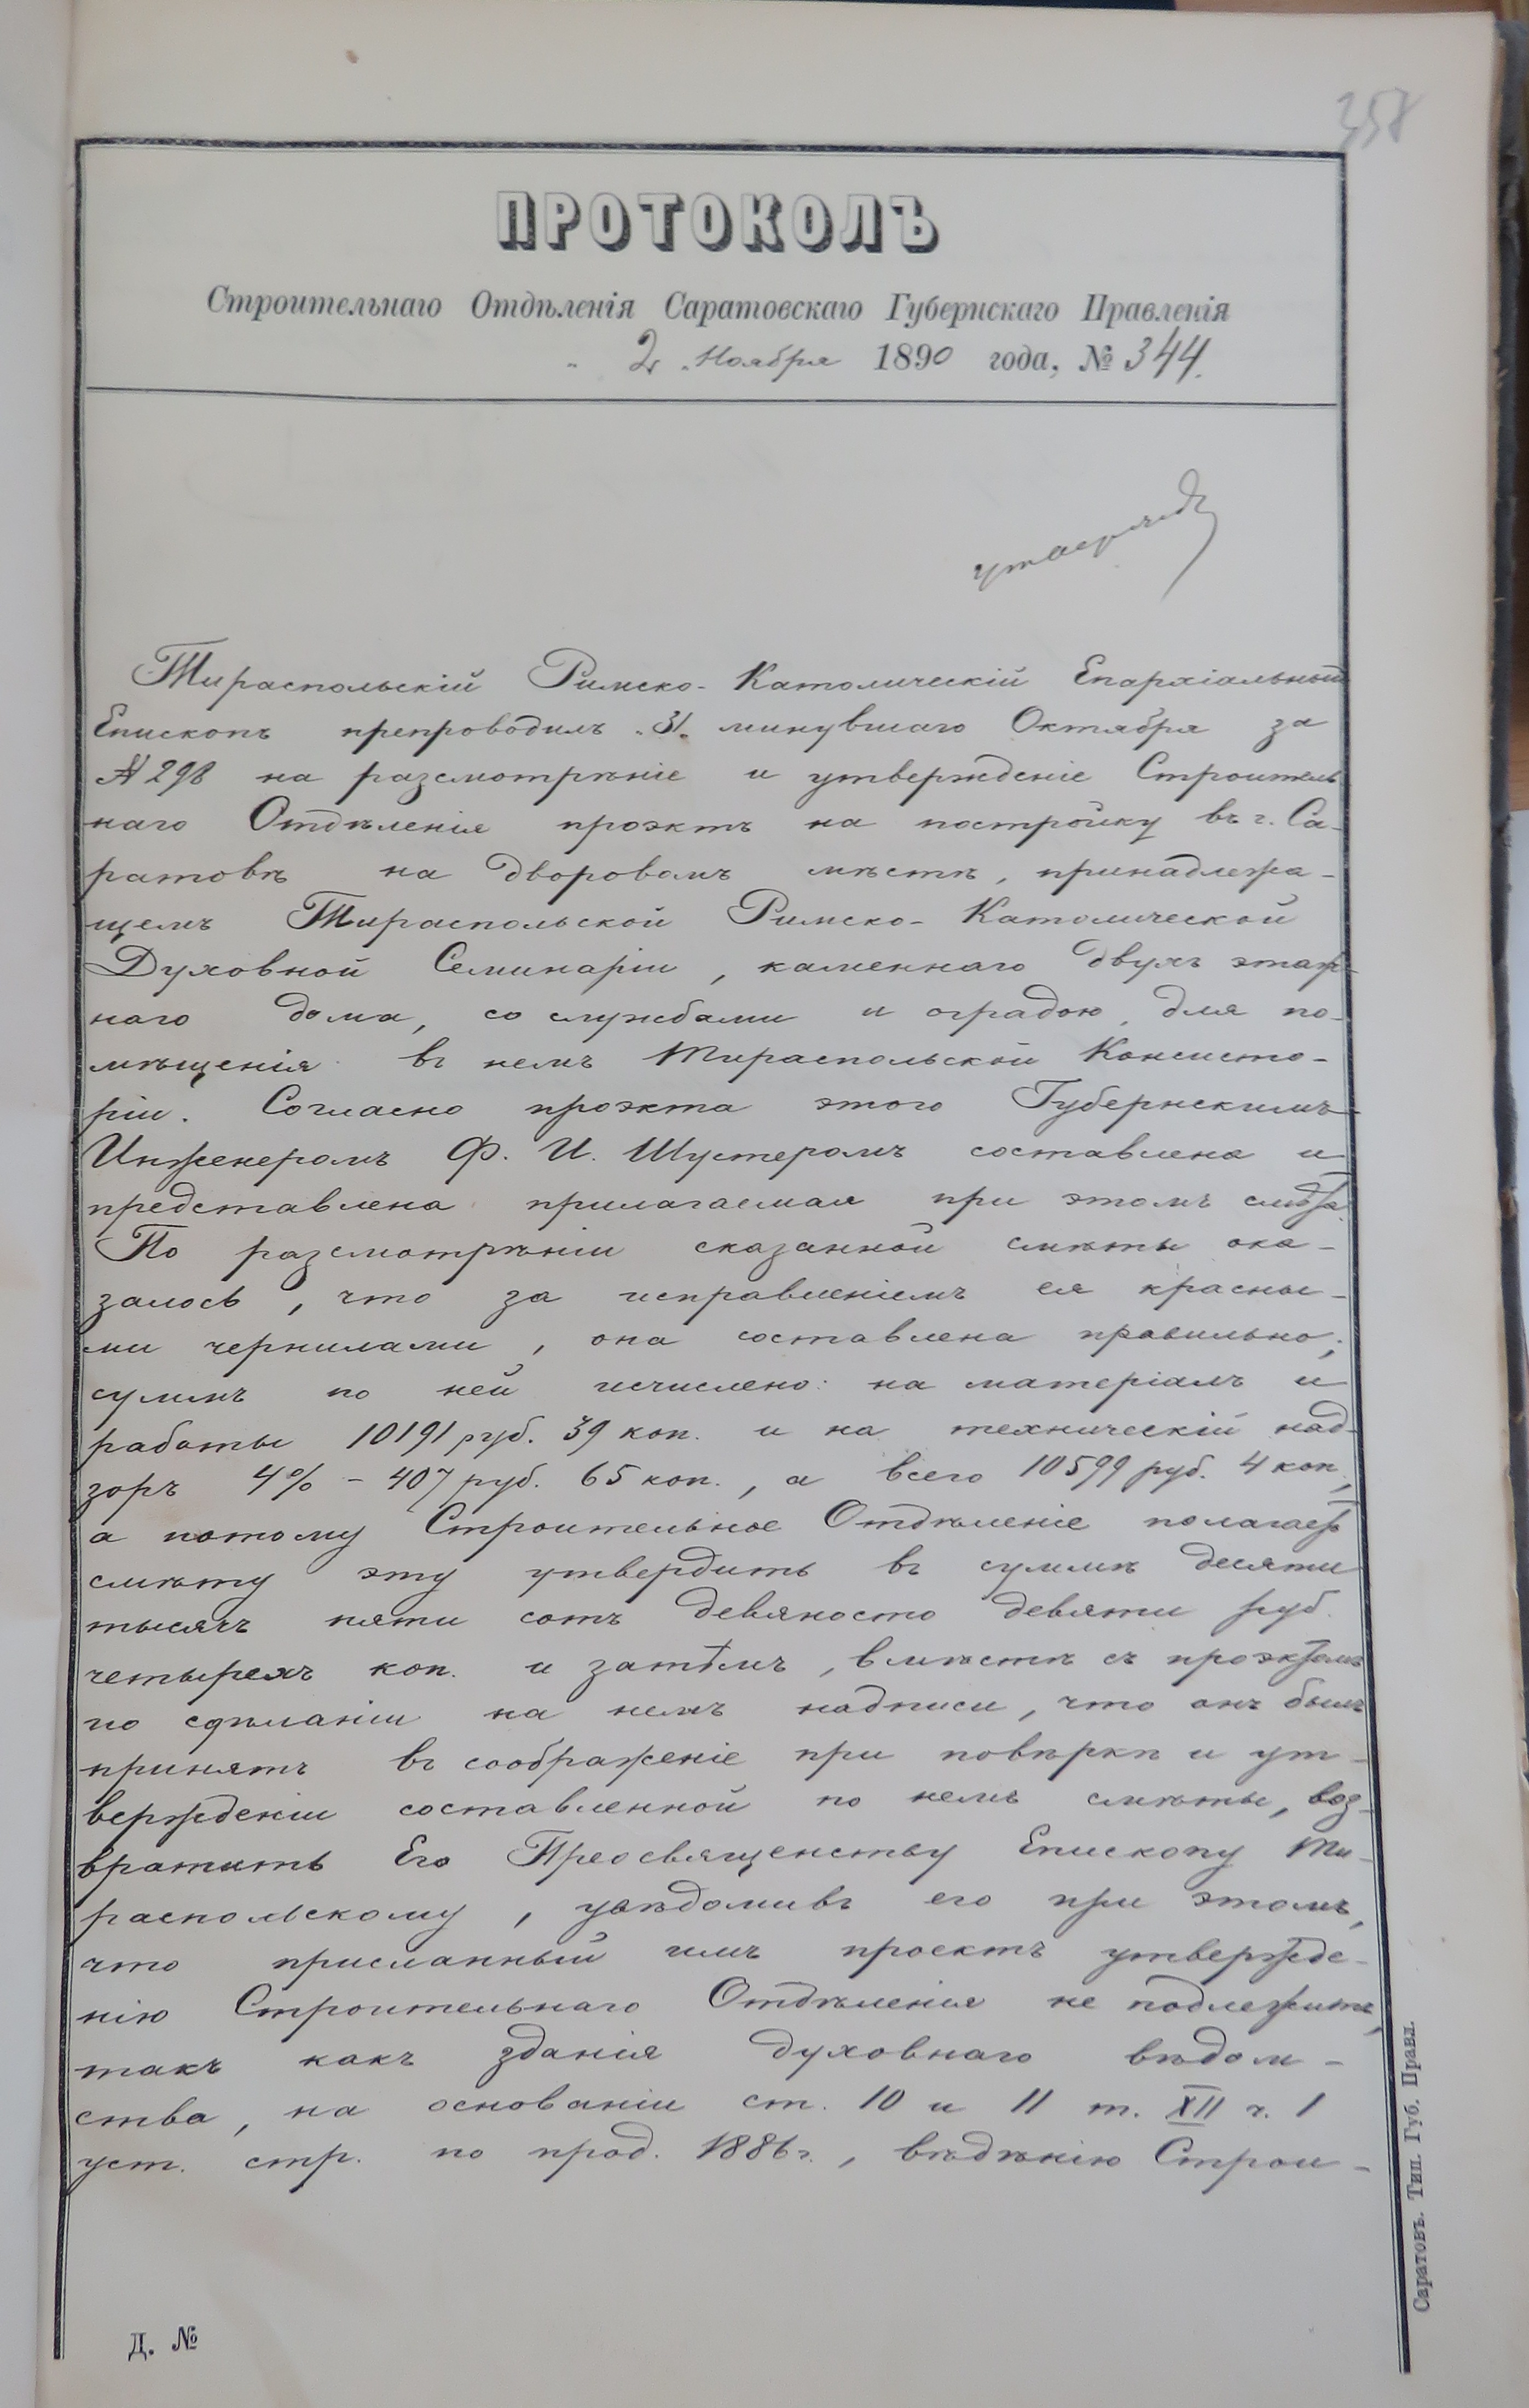 358
ПРОТОКОЛЪ
Строительнаго Отдѣленія Саратовскаго Губернскаго Правленія
„ 2 „ Ноября 1890 года, № 344.
утверждъ
Тираспольскій Римско-Католическій Епархіальный
Епископъ препроводилъ „31„ минувшаго Октября за
№ 298 на разсмотрѣніе и утвержденіе Строитель
наго Отдѣленія проэктъ на постройку въ г. Са-
ратовѣ на дворовомъ мѣстѣ, принадлежа-
щемъ Тираспольской Римско-Католической
Духовной Семинаріи, каменнаго двухъ этаж-
наго дома, со службами и оградою, для по-
мѣщенія въ немъ Тираспольской Консисто-
ріи. Согласно проэкта этого Губернскимъ
Инженеромъ Ф. И. Шустеромъ составлена и
представлена прилагаемая при этомъ смѣта.
По разсмотрѣніи сказанной смѣты ока-
залось, что за исправленіемъ ея красны-
ми чернилами, она составлена правильно;
суммъ по ней исчислено: на матеріалъ и
работы 10191 руб. 39 коп. и на техническій над-
зоръ 4% - 407 руб. 65 коп., а всего 10599 руб. 4 коп.,
а потому Строительное Отдѣленіе полагаетъ
смѣту эту утвердить въ суммѣ десяти
тысячъ пяти сотъ девяносто девяти руб.
четырехъ коп. и затѣмъ, вмѣстѣ съ проэктомъ
по сдѣланіи на немъ надписи, что онъ былъ
принятъ въ соображеніе при повѣркѣ и ут-
вержденіи составленной по немъ смѣты, воз-
вратить Его Преосвященству Епископу Ти-
распольскому, увѣдомивъ его при этомъ,
что присланный имъ проектъ утвержде-
нію Строительнаго Отдѣленія не подлежитъ,
такъ какъ зданія духовнаго вѣдом-
ства, на основаніи ст. 10 и 11 т. XII ч. 1
уст. стр. по прод. 1886 г., вѣдѣнію Строи-
Д. №
Саратовъ. Тип. Губ. Правл.